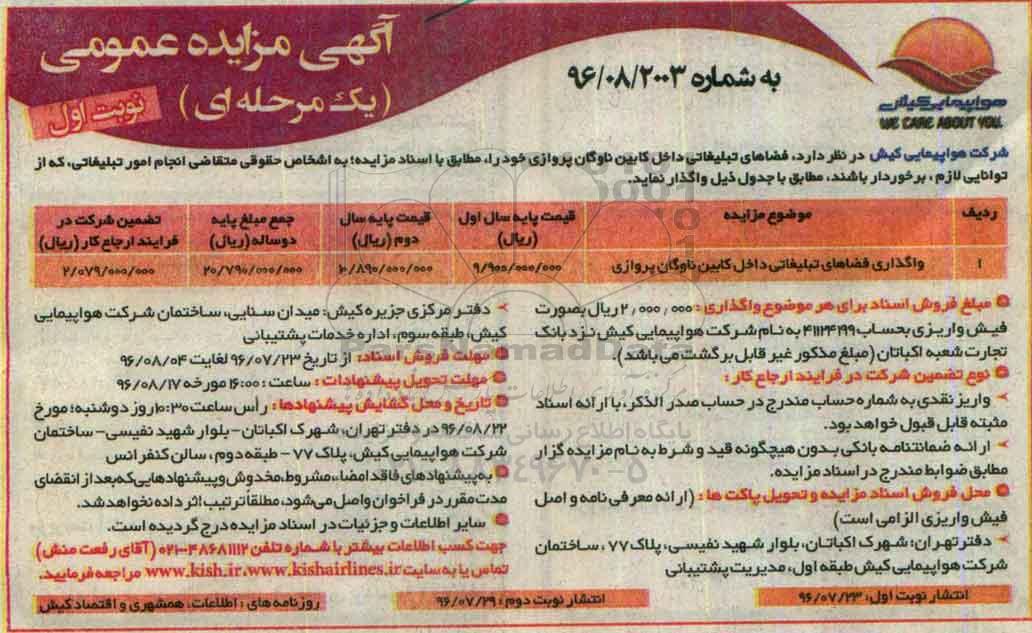 آگهی مزایده عمومی
(یک مرحله ای)
نوبت اول
به شماره ۹۶/۰۸/۲۰۰۳
هواپیمایی کیش
WE CARE ABOUT YOU.
شرکت هواپیمایی کیش در نظر دارد، فضاهای تبلیغاتی داخل کابین ناوگان پروازی خود را، مطابق با اسناد مزایده؛ به اشخاص حقوقی متقاضی انجام امور تبلیغاتی، که از
توانایی لازم، برخوردار باشند، مطابق با جدول ذیل واگذار نماید.
ردیف موضوع مزایده قیمت پایه سال اول (ریال) قیمت پایه سال دوم (ریال) جمع مبلغ پایه دوساله (ریال) تضمین شرکت در فرایند ارجاع کار (ریال)
۱ واگذاری فضاهای تبلیغاتی داخل کابین ناوگان پروازی ۹/۹۰۰/۰۰۰/۰۰۰ ۱۰/۸۹۰/۰۰۰/۰۰۰ ۲۰/۷۹۰/۰۰۰/۰۰۰ ۲/۰۷۹/۰۰۰/۰۰۰
مبلغ فروش اسناد برای هر موضوع واگذاری: ۲,۰۰۰,۰۰۰ ریال بصورت
فیش واریزی بحساب ۴۱۱۲۴۱۹۹ به نام شرکت هواپیمایی کیش نزد بانک
تجارت شعبه اکباتان (مبلغ مذکور غیر قابل برگشت می باشد).
نوع تضمین شرکت در فرایند ارجاع کار:
واریز نقدی به شماره حساب مندرج در حساب صدر الذکر، با ارائه اسناد
مثبته قابل قبول خواهد بود.
ارائه ضمانتنامه بانکی بدون هیچگونه قید و شرط به نام مزایده گزار
مطابق ضوابط مندرج در اسناد مزایده.
محل فروش اسناد مزایده و تحویل پاکت ها: (ارائه معرفی نامه و اصل
فیش واریزی الزامی است)
دفتر تهران: شهرک اکباتان، بلوار شهید نفیسی، پلاک ۷۷، ساختمان
شرکت هواپیمایی کیش طبقه اول، مدیریت پشتیبانی
دفتر مرکزی جزیره کیش: میدان سنایی، ساختمان شرکت هواپیمایی
کیش، طبقه سوم، اداره خدمات پشتیبانی
مهلت فروش اسناد: از تاریخ ۹۶/۰۷/۲۳ لغایت ۹۶/۰۸/۰۴
مهلت تحویل پیشنهادات: ساعت: ۱۶:۰۰ مورخه ۹۶/۰۸/۱۷
تاریخ و محل گشایش پیشنهادها: رأس ساعت ۱۰:۳۰ روز دوشنبه؛ مورخ
۹۶/۰۸/۲۲ در دفتر تهران، شهرک اکباتان- بلوار شهید نفیسی- ساختمان
شرکت هواپیمایی کیش، پلاک ۷۷ - طبقه دوم، سالن کنفرانس
به پیشنهادهای فاقد امضاء، مشروط، مخدوش و پیشنهادهایی که بعد از انقضای
مدت مقرر در فراخوان واصل می شود، مطلقاً ترتیب اثر داده نخواهد شد.
سایر اطلاعات و جزئیات در اسناد مزایده درج گردیده است.
جهت کسب اطلاعات بیشتر با شماره تلفن ۴۸۶۸۱۱۱۲-۰۲۱ (آقای رفعت منش)
تماس یا به سایت www.kish.ir،www.kishairlines.ir مراجعه فرمایید.
انتشار نوبت اول: ۹۶/۰۷/۲۳ انتشار نوبت دوم: ۹۶/۰۷/۲۹ روزنامه های: اطلاعات، همشهری و اقتصاد کیش